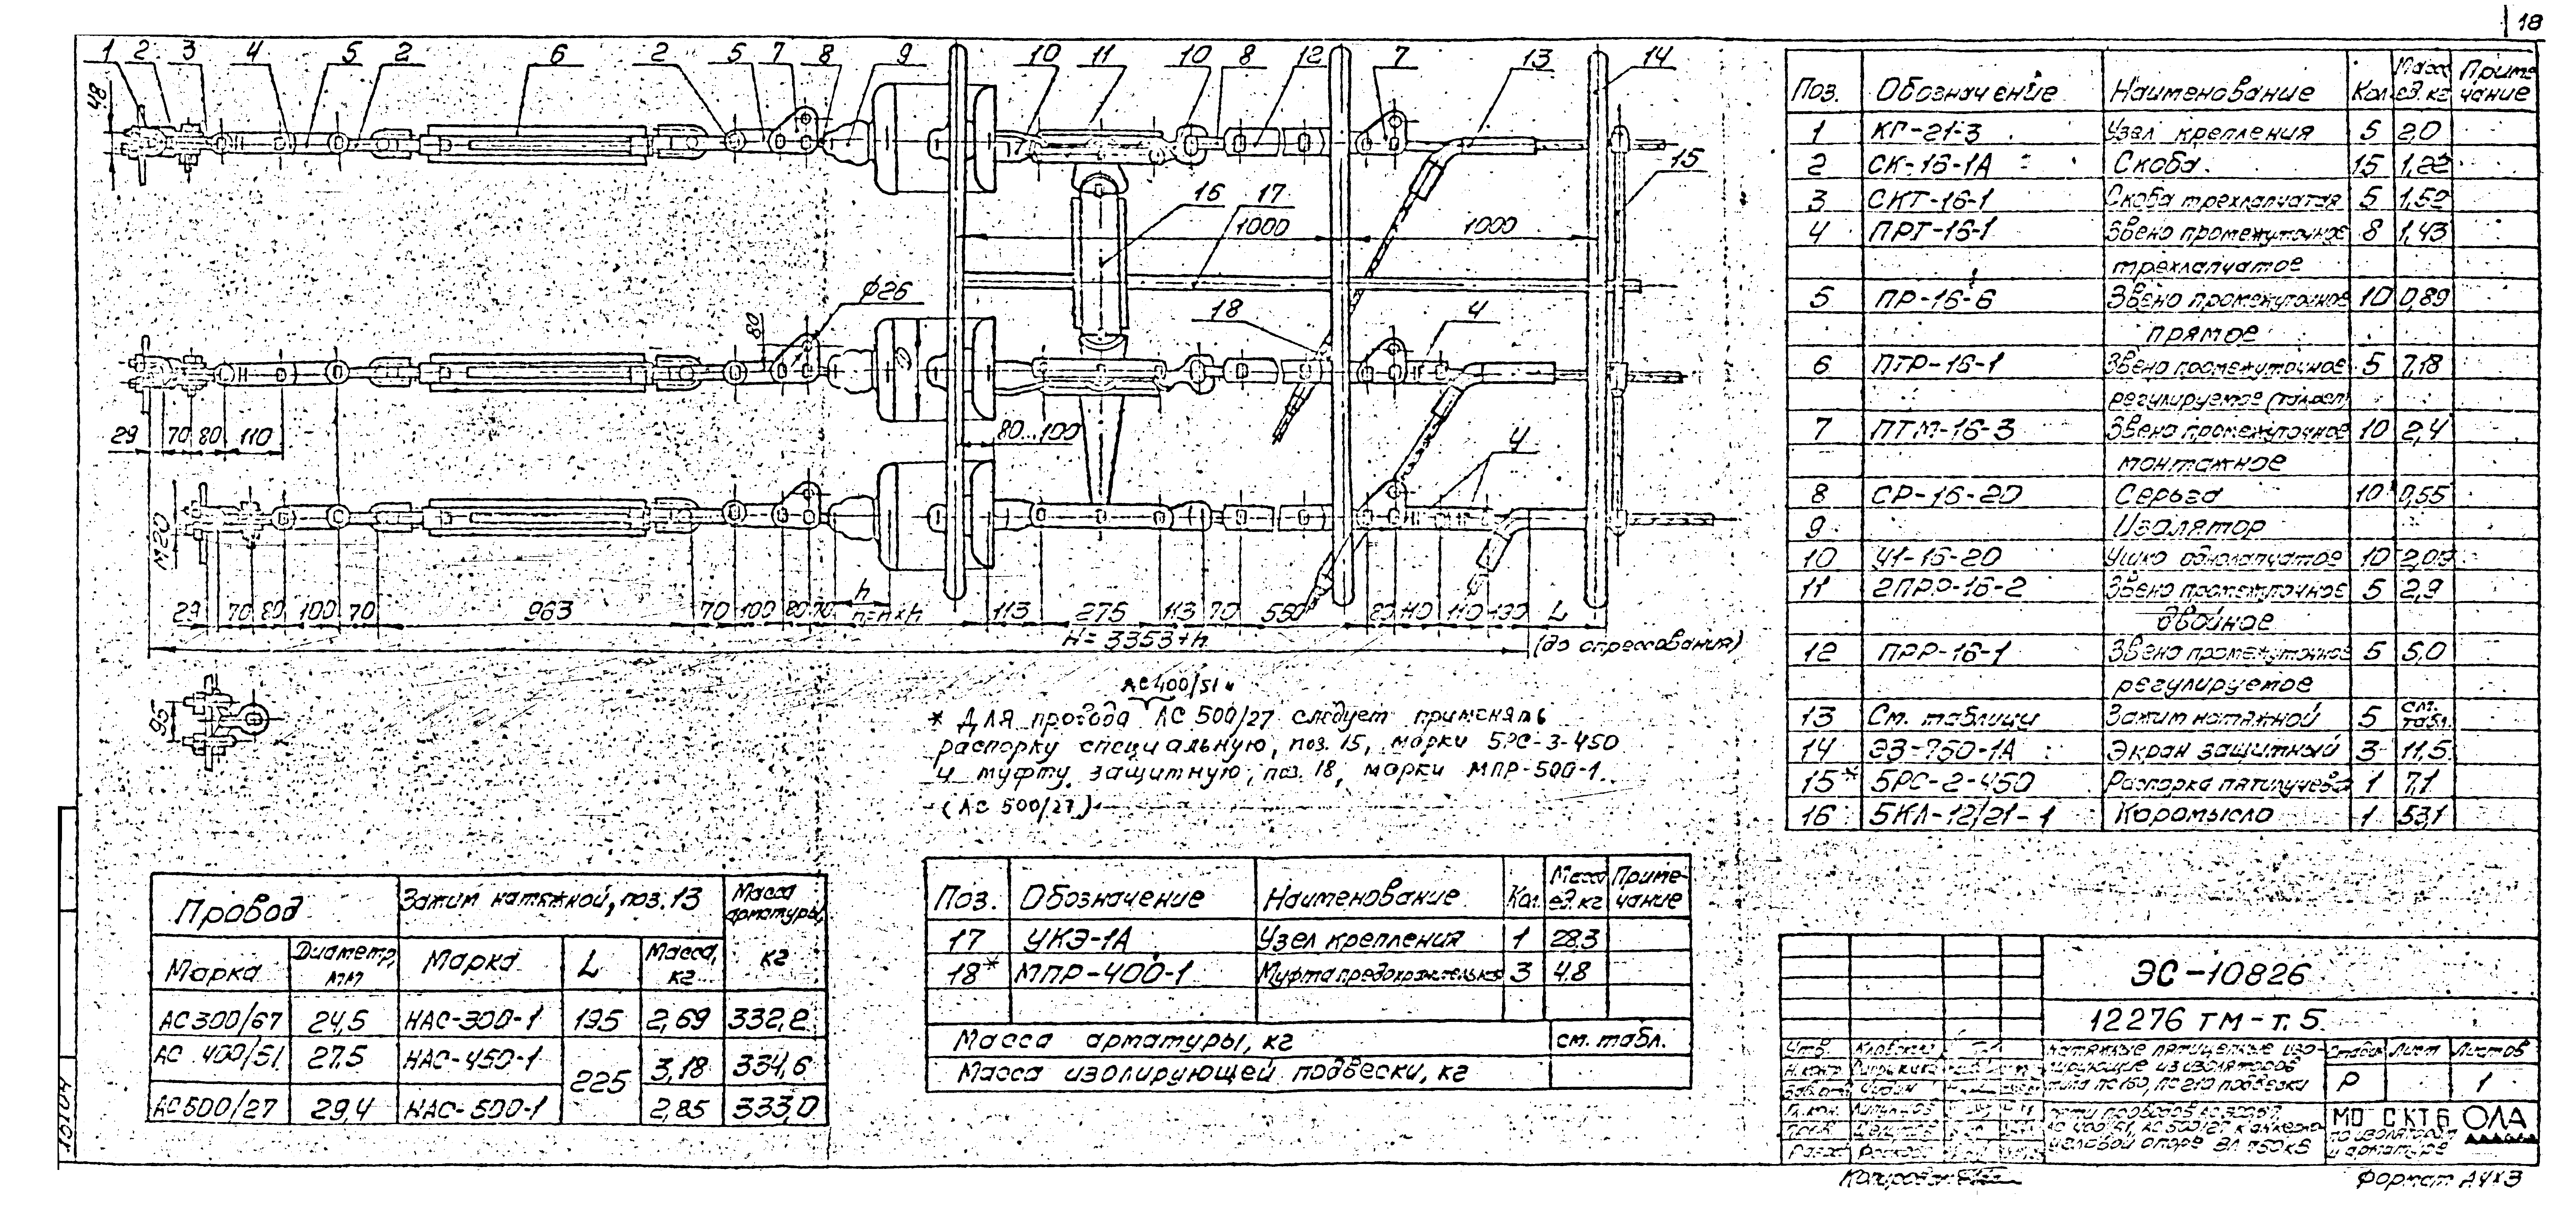 18
1 2 3 4 5 2 6 2 5 7 8 9 10 11 10 8 12 7 13 14
48
15
16 17
1000 1000
Ø26
80
18 4
29 70 80 110
80...100
4
М20
29 70 80 100 70 963 70 100 80 70 h 113 275 113 70 550 80 110 110 130 L
h=n×h
H=3353+h (до опрессования)
95
АС 400/51 и
* Для провода АС 500/27 следует применять
распорку специальную, поз. 15, марки 5РС-3-450
и муфту защитную, поз. 18, марки МПР-500-1
(АС 500/27)
Поз. Обозначение Наименование Кол Масс ед. кг Приме чание
1 КГ-21-3 Узел крепления 5 2,0
2 СК-16-1А Скоба 15 1,22
3 СКТ-16-1 Скоба трехлапчатая 5 1,52
4 ПРТ-16-1 Звено промежуточное 8 1,43
трехлапчатое
5 ПР-16-6 Звено промежуточное 10 0,89
прямое
6 ПТР-16-1 Звено промежуточное 5 7,18
регулируемое (талреп)
7 ПТМ-16-3 Звено промежуточное 10 2,4
монтажное
8 СР-16-20 Серьга 10 0,55
9 Изолятор
10 У1-16-20 Ушко однолапчатое 10 2,09
11 2ПРР-16-2 Звено промежуточное 5 2,9
двойное
12 ПРР-16-1 Звено промежуточное 5 5,0
регулируемое
13 См. таблицу Зажим натяжной 5 см. табл.
14 ЭЗ-750-1А Экран защитный 3 11,5
15* 5РС-2-450 Распорка пятилучева 1 7,1
16 5КЛ-12/21-1 Коромысло 1 53,1
Провод Зажим натяжной, поз. 13 Масса арматуры, кг
Марка Диаметр, мм Марка L Масса, кг
АС300/67 24,5 НАС-300-1 195 2,69 332,2
АС 400/51 27,5 НАС-450-1 225 3,18 334,6
АС500/27 29,4 НАС-500-1 2,85 333,0
Поз. Обозначение Наименование Кол. Масса ед. кг Приме- чание
17 УКЭ-1А Узел крепления 1 28,3
18* МПР-400-1 Муфта предохранительная 3 4,8
Масса арматуры, кг см. табл.
Масса изолирующей подвески, кг
ЭС-10826
12276 тм-т. 5
Утв.
Н.конт
натяжные пятицепные изо-
лирующие из изоляторов
типа ПС160, ПС210 подвески
пяти проводов АС300/67,
АС 400/51, АС 500/27 к анкерно
угловой опоре ВЛ 750кВ
Стадия Лист Листов
Р 1
МО СКТБ ОЛА
по изоляторам
и арматуре
10104
Копировал Формат А4х3